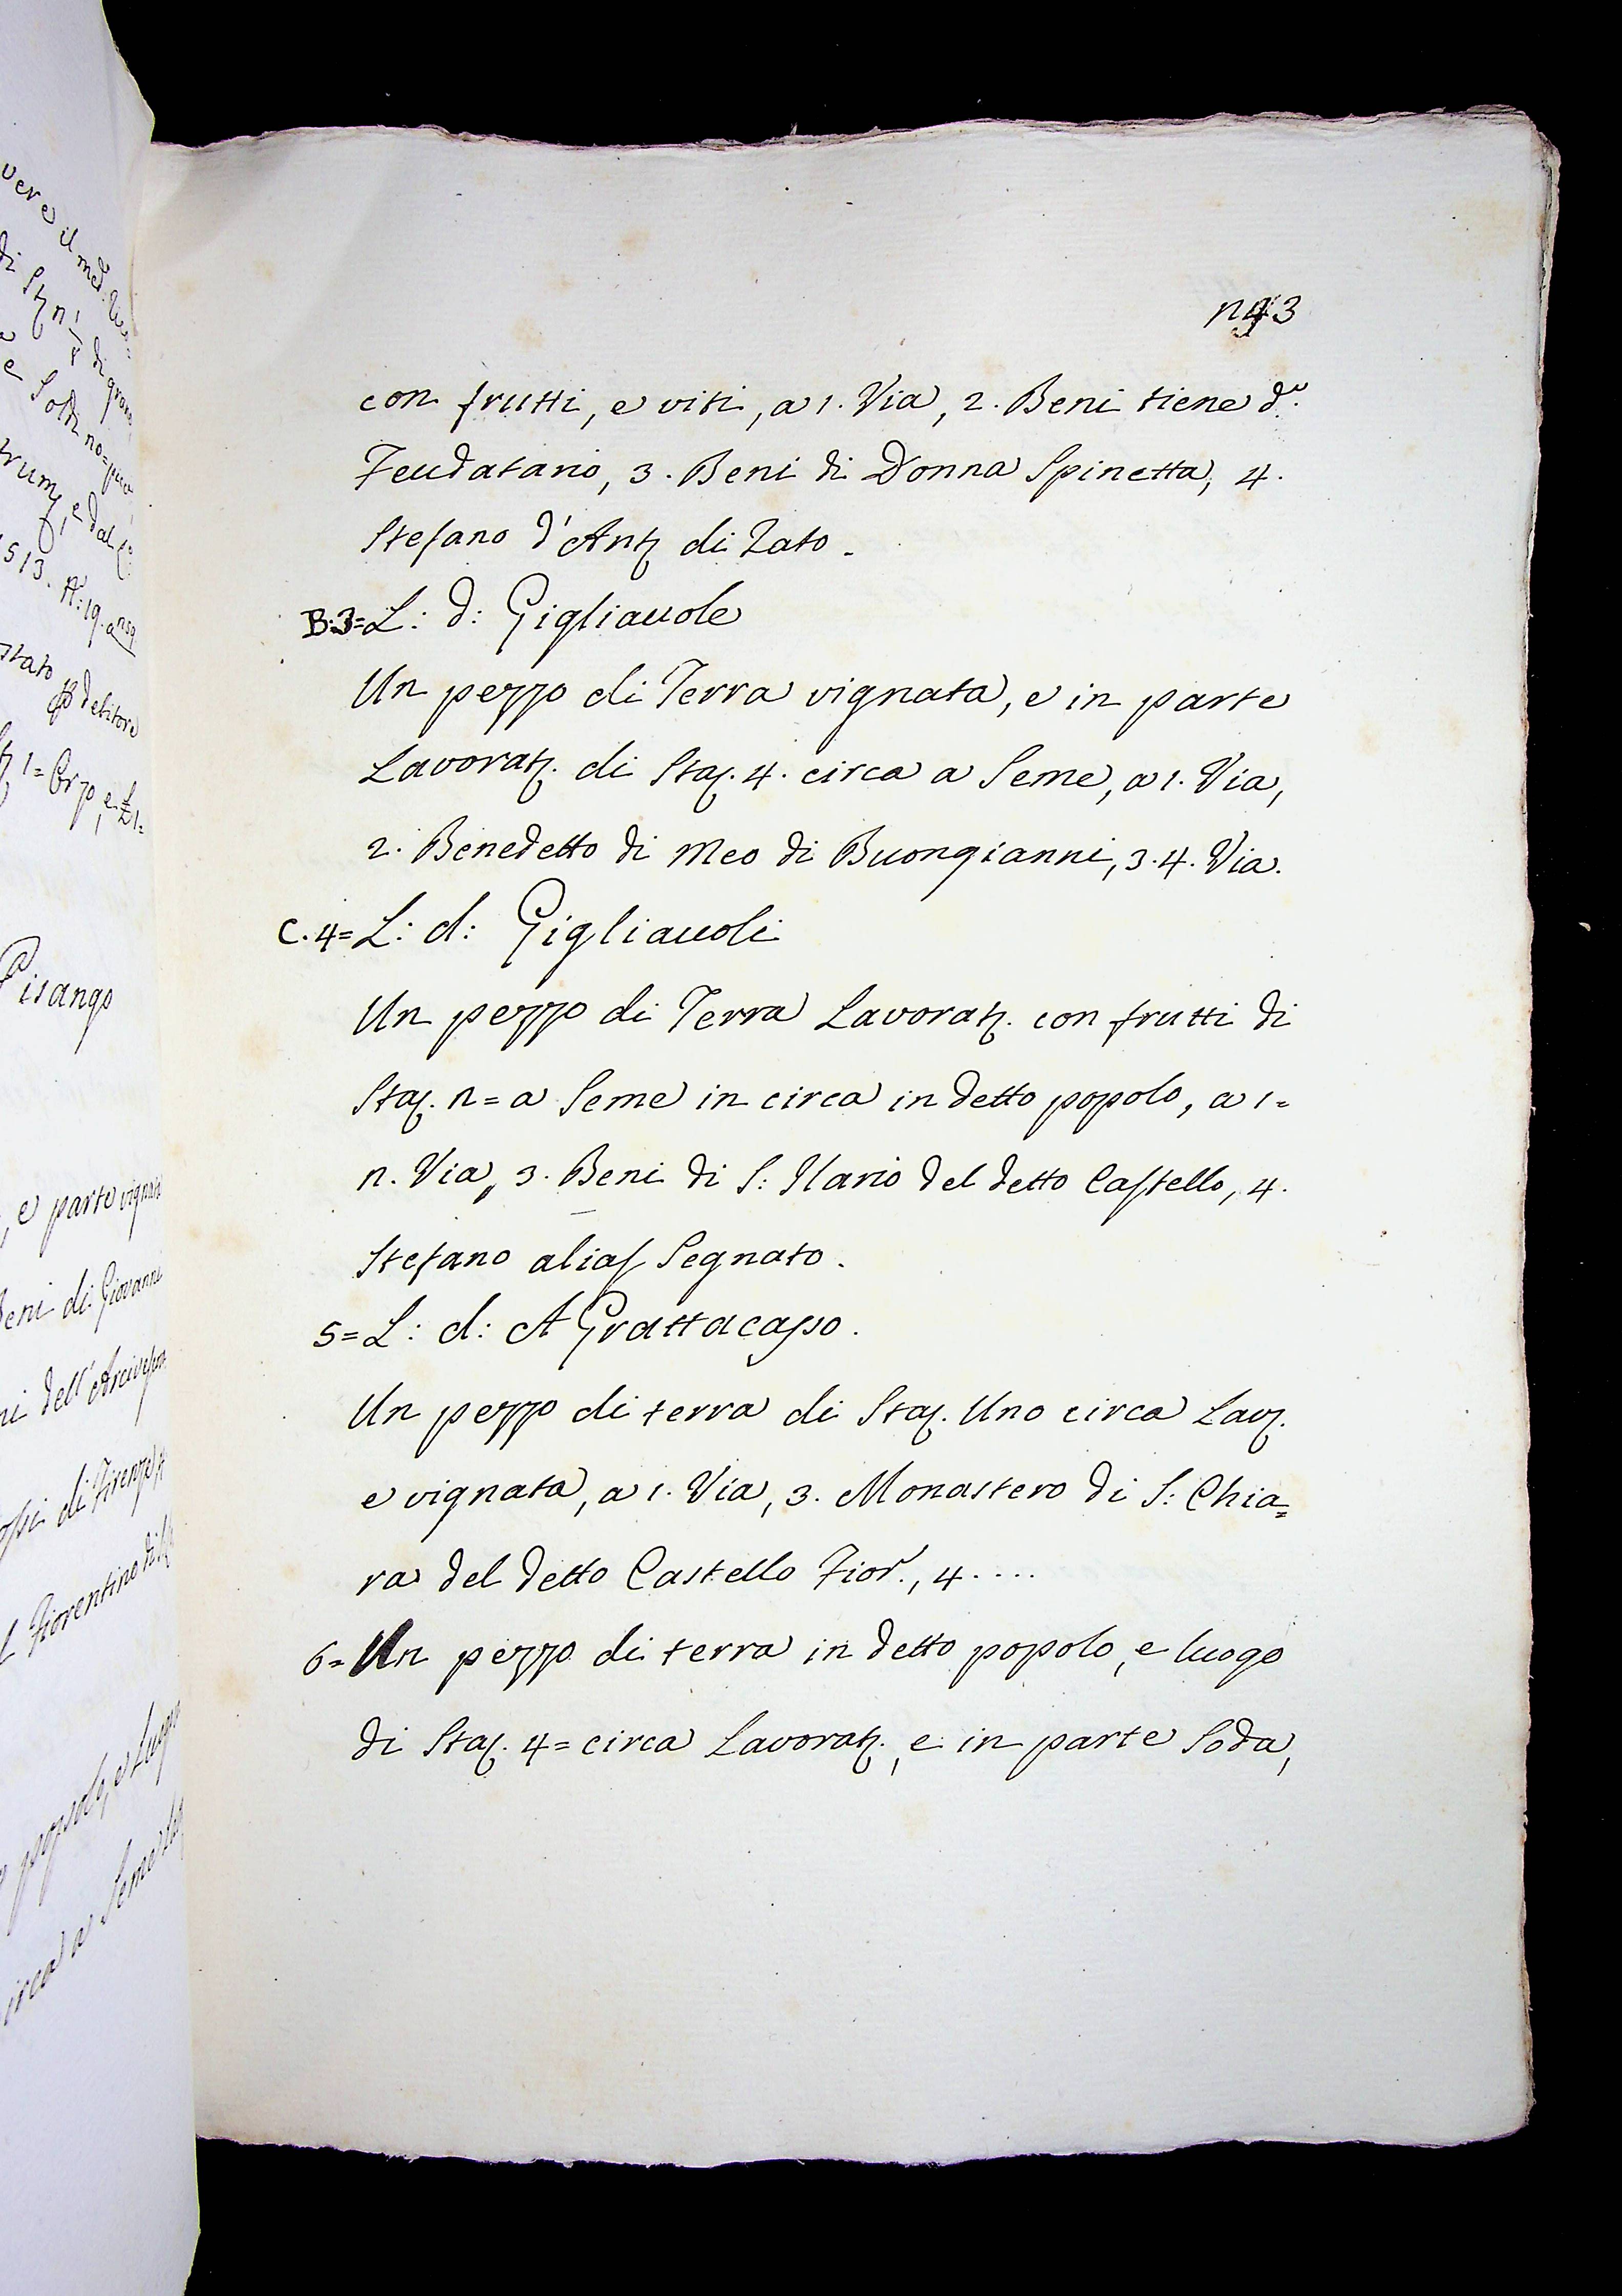 vere il med.
di
di grano
e Soldi no=
trum, e dal
1513.
stato debitore
1=
Pisano
, e parte vignata
Beni di Giovanni
ni dell'Arcivesco
di Firenze
l Fiorentino di
popolo, e Luogo
circa a Seme
3
con frutti, e viti, a 1. Via, 2. Beni tiene d.o
Feudatario, 3. Beni di Donna Spinetta, 4.
Stefano d'Antº di Zato.
B:3= L: d: Gigliauole
Un pezzo di Terra vignata, e in parte
Lavoratª. di Staª. 4. circa a Seme, a 1. Via,
2. Benedetto di Meo di Buongianni, 3. 4. Via.
C. 4= L: d: Gigliauoli
Un pezzo di Terra Lavoratª. con frutti di
Staª. n= a Seme in circa in detto popolo, a 1=
n. Via, 3. Beni di S: Ilario del detto Castello, 4.
Stefano alias Segnato.
5= L: d: A Grattacasso.
Un pezzo di terra di Staª. Uno circa Lavª.
e vignata, a 1. Via, 3. Monastero di S: Chia=
ra del detto Castello Fior.º, 4....
6= Un pezzo di terra in detto popolo, e luogo
di Staª. 4= circa Lavoratª., e in parte Soda,